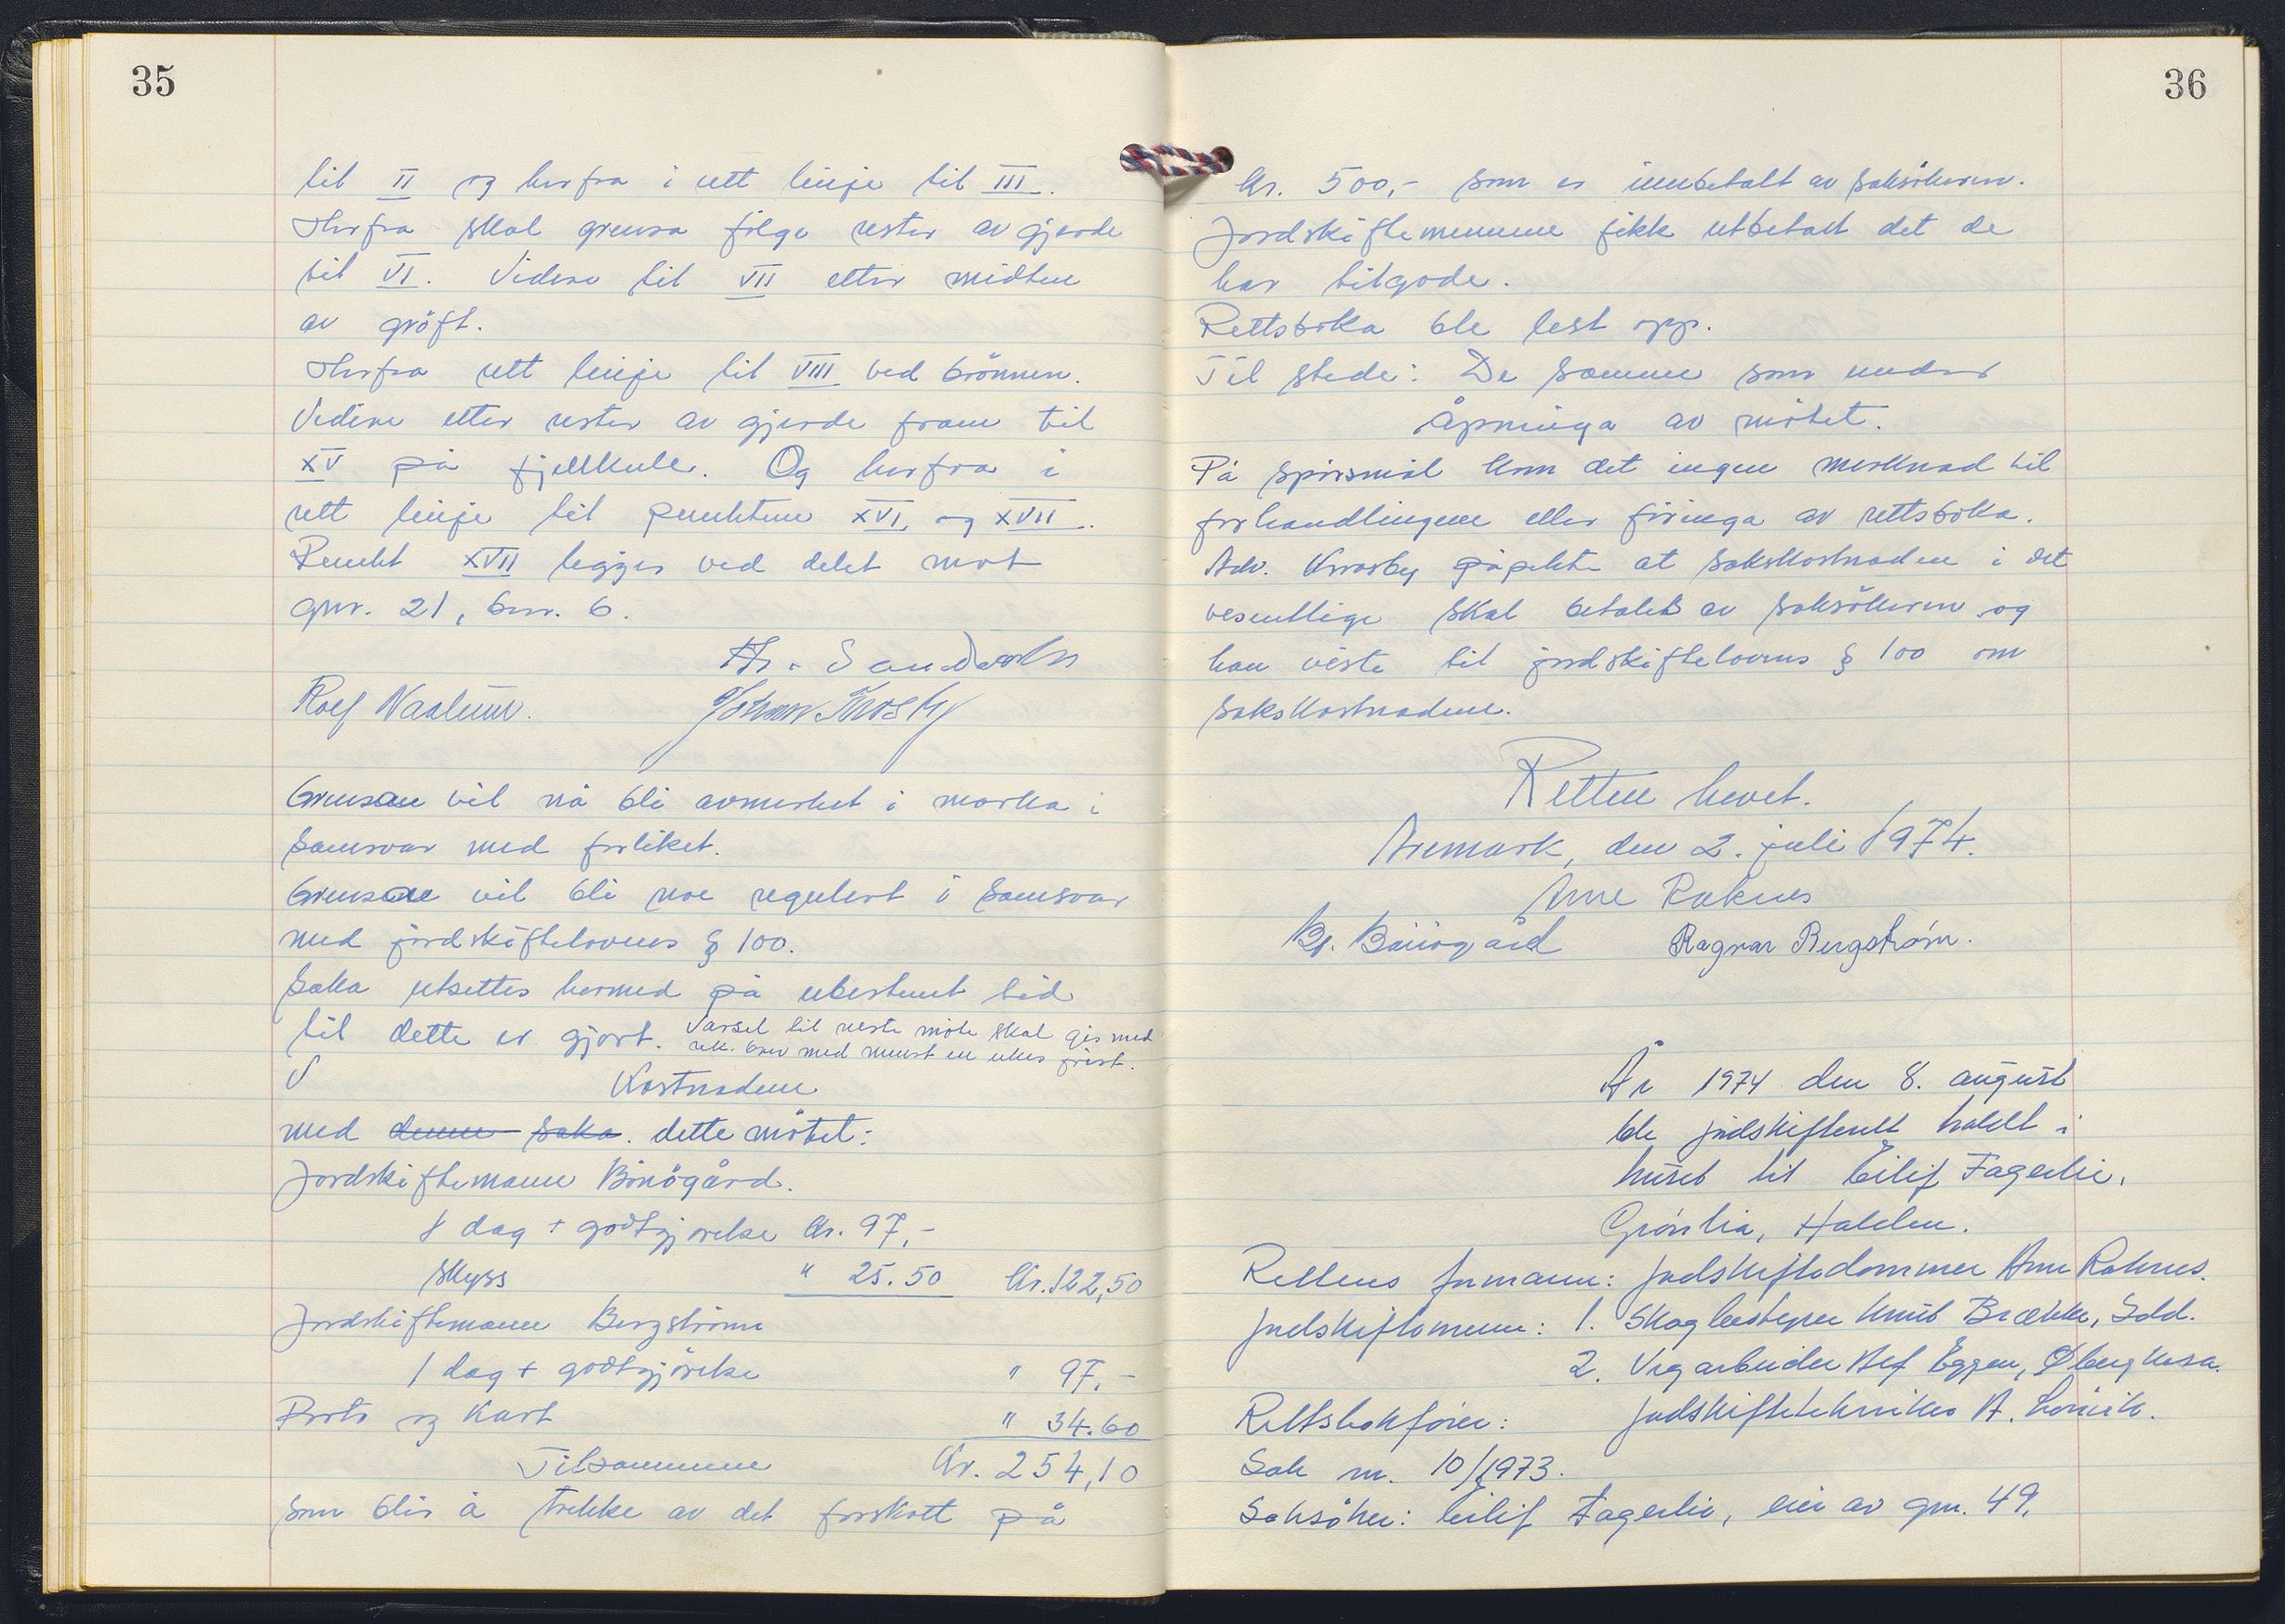 35
til II og herfra i rett linje til III.
Herfra skal grensa følge rester av gjerde
til VI. Videre til VII etter midten
av gröft.
Herfra rett linje til VIII ved brönnen.
Videre etter rester av gjerde fram til
XV på fjellkule. Og herfra i
rett linje til punktene XVI og XVII.
Punkt XVII legges ved delet mot
gnr. 21, bnr. 6.
Rolf
Grensen vil nå bli avmerket i marka i
samsvar med forliket.
Grensene vil bli noe regulert i samsvar
med jordskiftelovens § 100.
Saka utsettes hermed på ubestemt tid
til dette er gjort. Varsel til neste møte skal gis med
rek. brev med minst en ukes frist.
Kostnadene
med denne saka. dette mötet:
Jordskiftemann Böuögård.
1 dag + godtgjörelse kr. 97,-
Skyss " 25.50 kr. 122,50
Jordskiftemann Bergström
1 dag + godtgjörelse " 97,-
Porto og kart " 34.60
Tilsammen kr. 254,10
som blir å trekke av det forskott på
36
kr. 500,- som er innbetalt av saksökeren.
Jordskiftemennene fikk utbetalt det de
har tilgode.
Rettsboka ble lest opp.
Til stede: De samme som under
åpninga av mötet.
På spörsmål kom det ingen merknad til
forhandlingene eller föringa av rettsboka.
Adv. påpekte at sakskostnadene i det
vesentlige skal betales av saksökeren og
han viste til jordskiftelovens § 100 om
sakskostnadene.
Retten hevet.
Aremark, den 2. juli 1974.
Arne Raknes
Ragnar Bergstrøm.
År 1974 den 8. august
ble jordskifterett holdt i
huset til Eilif Fagerlie,
Grönlia, Halden.
Rettens formann: jordskiftedommer Arne Raknes.
Jordskiftemenn: 1. Skogbestyrer Knut Brække, Idd.
2. Vegarbeider Alf Eggen, Øberg
Rettsbokfører: jordskiftetekniker A.
Sak nr. 10/1973.
Saksöker: Eilif Fagerlie, eier av gnr. 49,